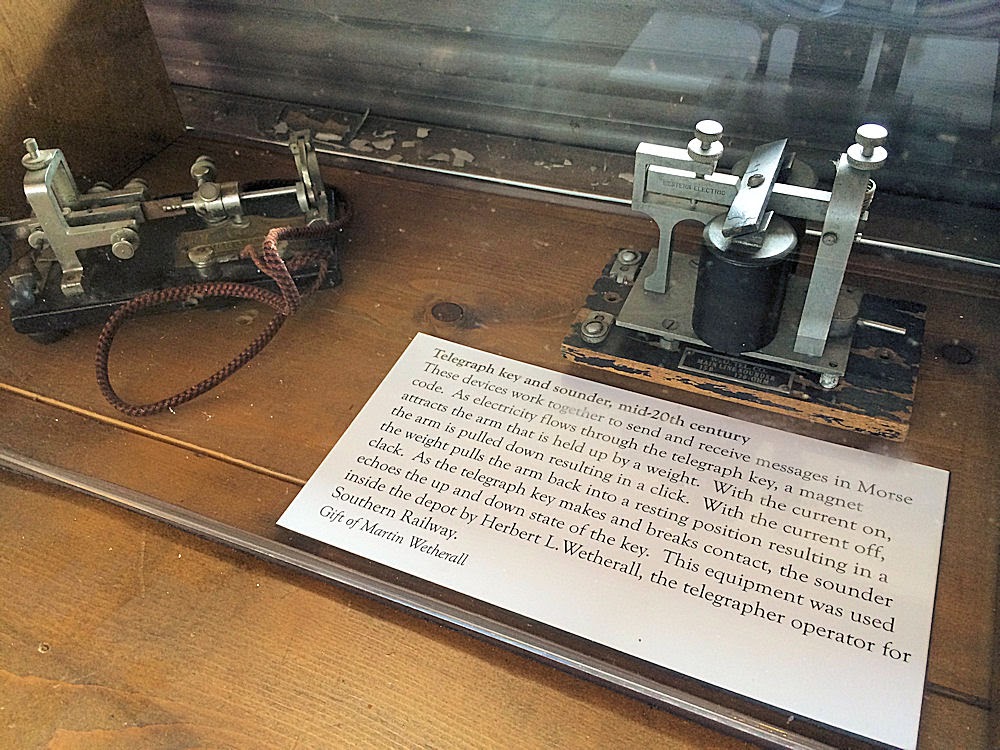 WESTERN ELECTRIC
MAIN LINE SOUNDER
OHM
Telegraph key and sounder, mid-20th century
These devices work together to send and receive messages in Morse
code. As electricity flows through the telegraph key, a magnet
attracts the arm that is held up by a weight. With the current on,
the arm is pulled down resulting in a click. With the current off,
the weight pulls the arm back into a resting position resulting in a
clack. As the telegraph key makes and breaks contact, the sounder
echoes the up and down state of the key. This equipment was used
inside the depot by Herbert L. Wetherall, the telegrapher operator for
Southern Railway.
Gift of Martin Wetherall